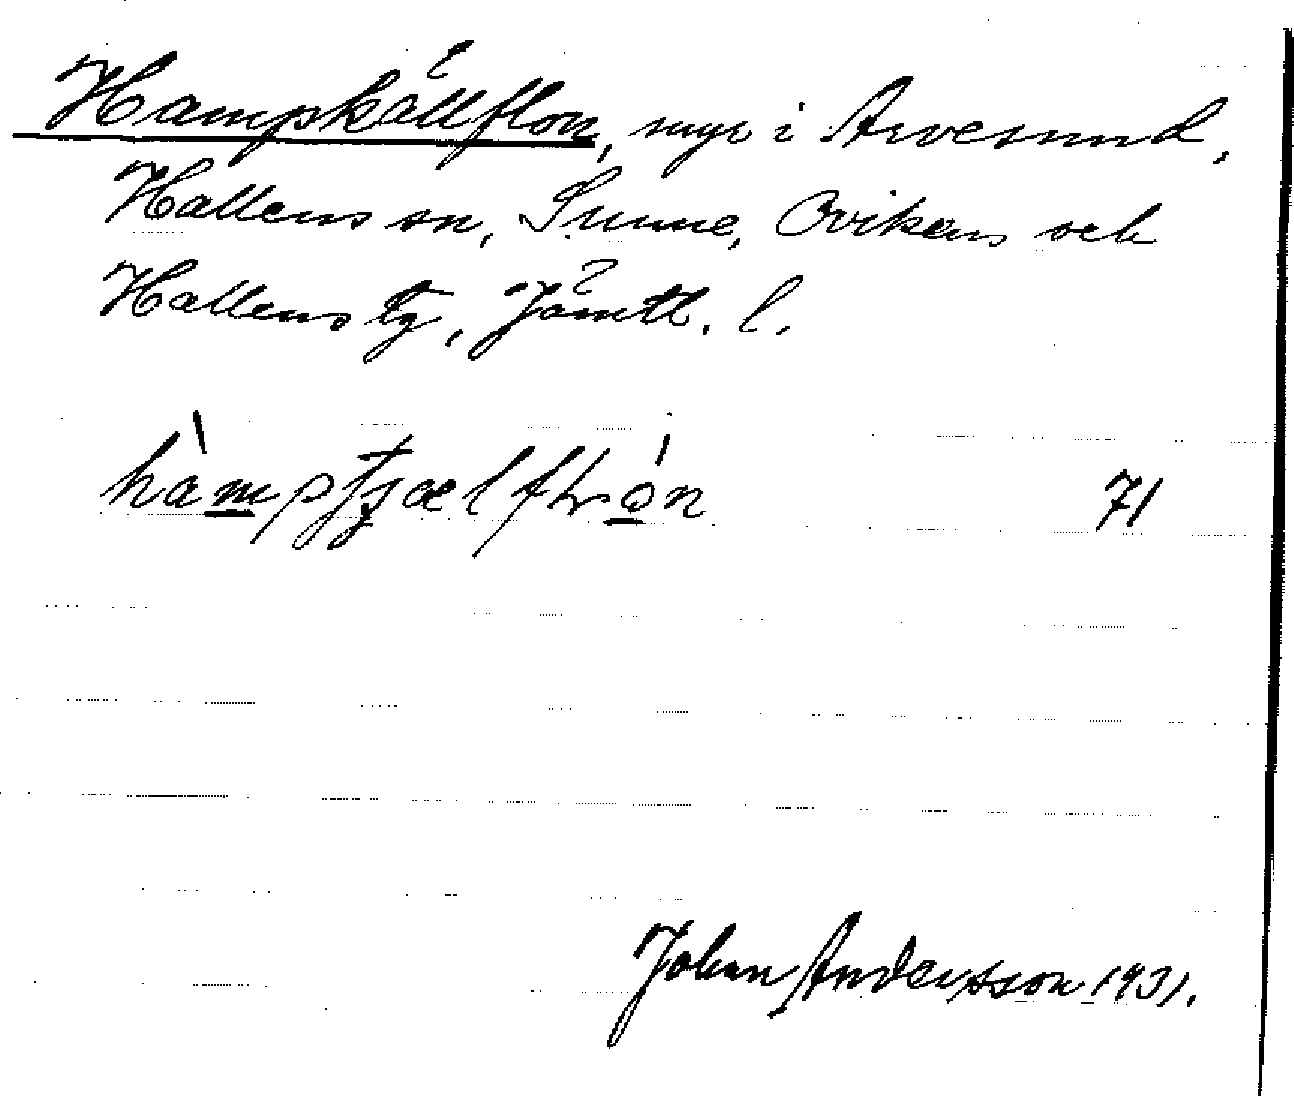 Hampkällflon, myr i Arvesund,
Hallens sn, Sunne, Ovikens och
Hallens tg, Jämtl. l.
71
Johan Andersson 1931.